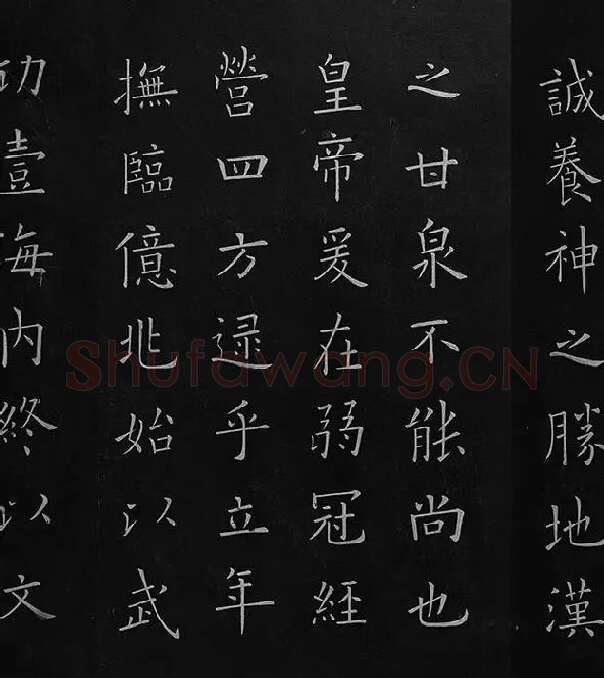 誠養神之勝地漢
之甘泉不能尚也
皇帝爰在弱冠經
營四方逮乎立年
撫臨億兆始以武
功壹海內終以文
Shufawang.CN